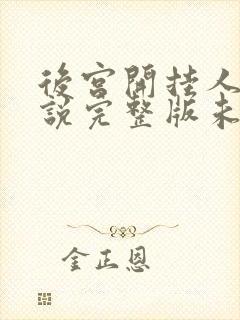 後宮開挂人
說完整版未
金正恩